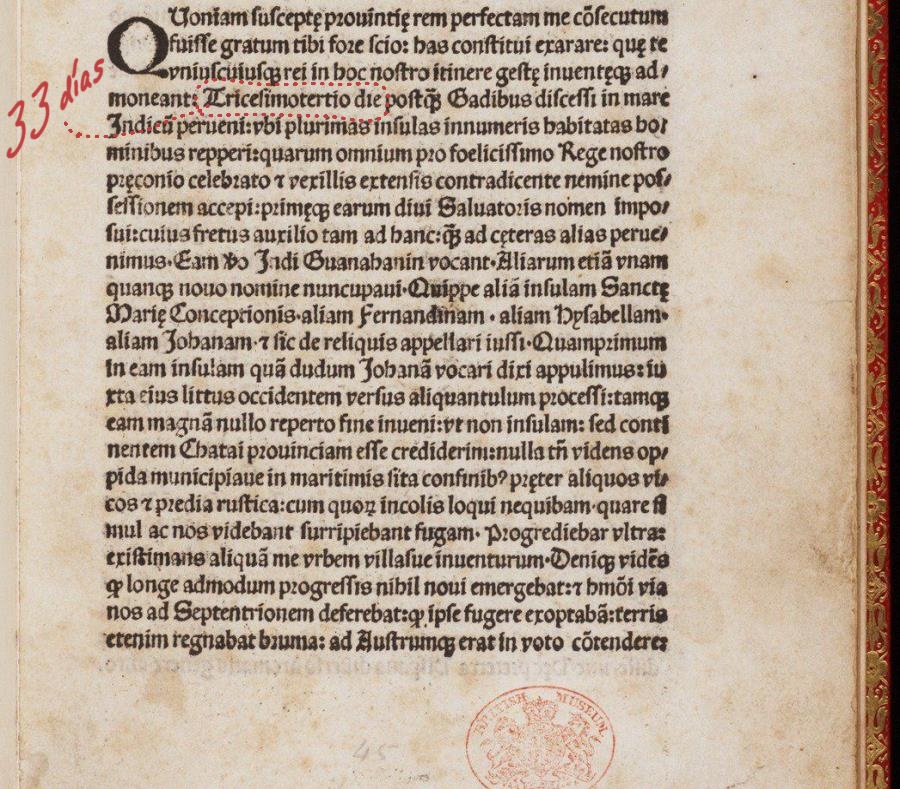 33 días
QUoniam susceptę prouintię rem perfectam me cõsecutum
fuisse gratum tibi fore scio: has constitui exarare: quę te
vniuscuiusqꝫ rei in hoc nostro itinere gestę inuentęqꝫ ad⸗
moneant: Tricesimotertio die postqꝫ̃ Gadibus discessi in mare
Indicũ perueni: vbi plurimas insulas innumeris habitatas ho⸗
minibus repperi: quarum omnium pro foelicissimo Rege nostro
pręconio celebrato ⁊ vexillis extensis contradicente nemine pos⸗
sessionem accepi: primęqꝫ earum diui Saluatoris nomen impo⸗
sui: cuius fretus auxilio tam ad hanc: qꝫ̃ ad cęteras alias perue⸗
nimus. Eam ꝟo Indi Guanahanin vocant. Aliarum etiã vnam
quanqꝫ nouo nomine nuncupaui. Quippe aliã insulam Sanctę
Marię Conceptionis. aliam Fernandinam . aliam Hysabellam.
aliam Johanam. ⁊ sic de reliquis appellari iussi. Quamprimum
in eam insulam quã dudum Johanã vocari dixi appulimus: iu
xta eius littus occidentem versus aliquantulum processi: tamqꝫ
eam magnã nullo reperto fine inueni: vt non insulam: sed conti
nentem Chatai prouinciam esse crediderim: nulla tñ videns op⸗
pida municipiaue in maritimis sita confinibꝰ pręter aliquos vi⸗
cos ⁊ predia rustica: cum quoꝝ incolis loqui nequibam. quare si
mul ac nos videbant surripiebant fugam. Progrediebar vltra:
existimans aliquã me vrbem villasue inuenturum. Deniqꝫ vidēs
ꝙ longe admodum progressis nihil noui emergebat: ⁊ hmõi via
nos ad Septentrionem deferebat: ꝙ ipse fugere exoptabã: terris
etenim regnabat bruma: ad Austrumqꝫ erat in voto cõtendere:
45
BRITISH MUSEUM